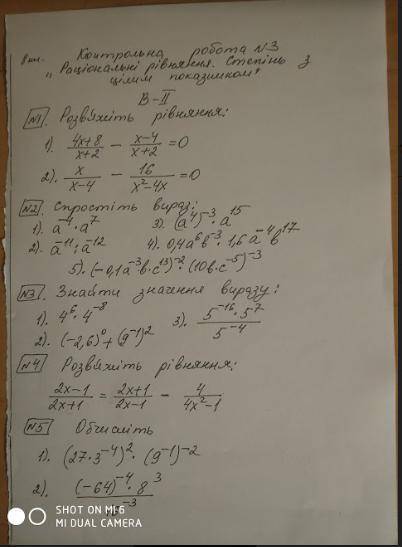 8 кл. Контрольна робота №3
"Раціональні рівняння. Степінь з
цілим показником"
В-II
№1. Розв'яжіть рівняння:
1). (4x+8)/(x+2) − (x−4)/(x+2) = 0
2). x/(x−4) − 16/(x²−4x) = 0
№2. Спростіть вираз:
1). a⁻⁴·a⁷ 3). (a⁴)⁻³·a¹⁵
2). a⁻¹¹:a⁻¹² 4). 0,4a⁶b⁻³·1,6a⁻⁴b¹⁷
5). (−0,1a⁻³b·c¹³)⁻²·(10b·c⁻⁵)⁻³
№3. Знайти значення виразу:
1). 4⁶·4⁻⁸ 3). (5⁻¹⁶·5⁷)/5⁻⁴
2). (−2,6)⁰+(9⁻¹)²
№4 Розв'яжіть рівняння:
(2x−1)/(2x+1) = (2x+1)/(2x−1) − 4/(4x²−1)
№5 Обчисліть
1). (27·3⁻⁴)²·(9⁻¹)⁻²
2). (−64)⁻⁴·8³
SHOT ON MI 6
MI DUAL CAMERA